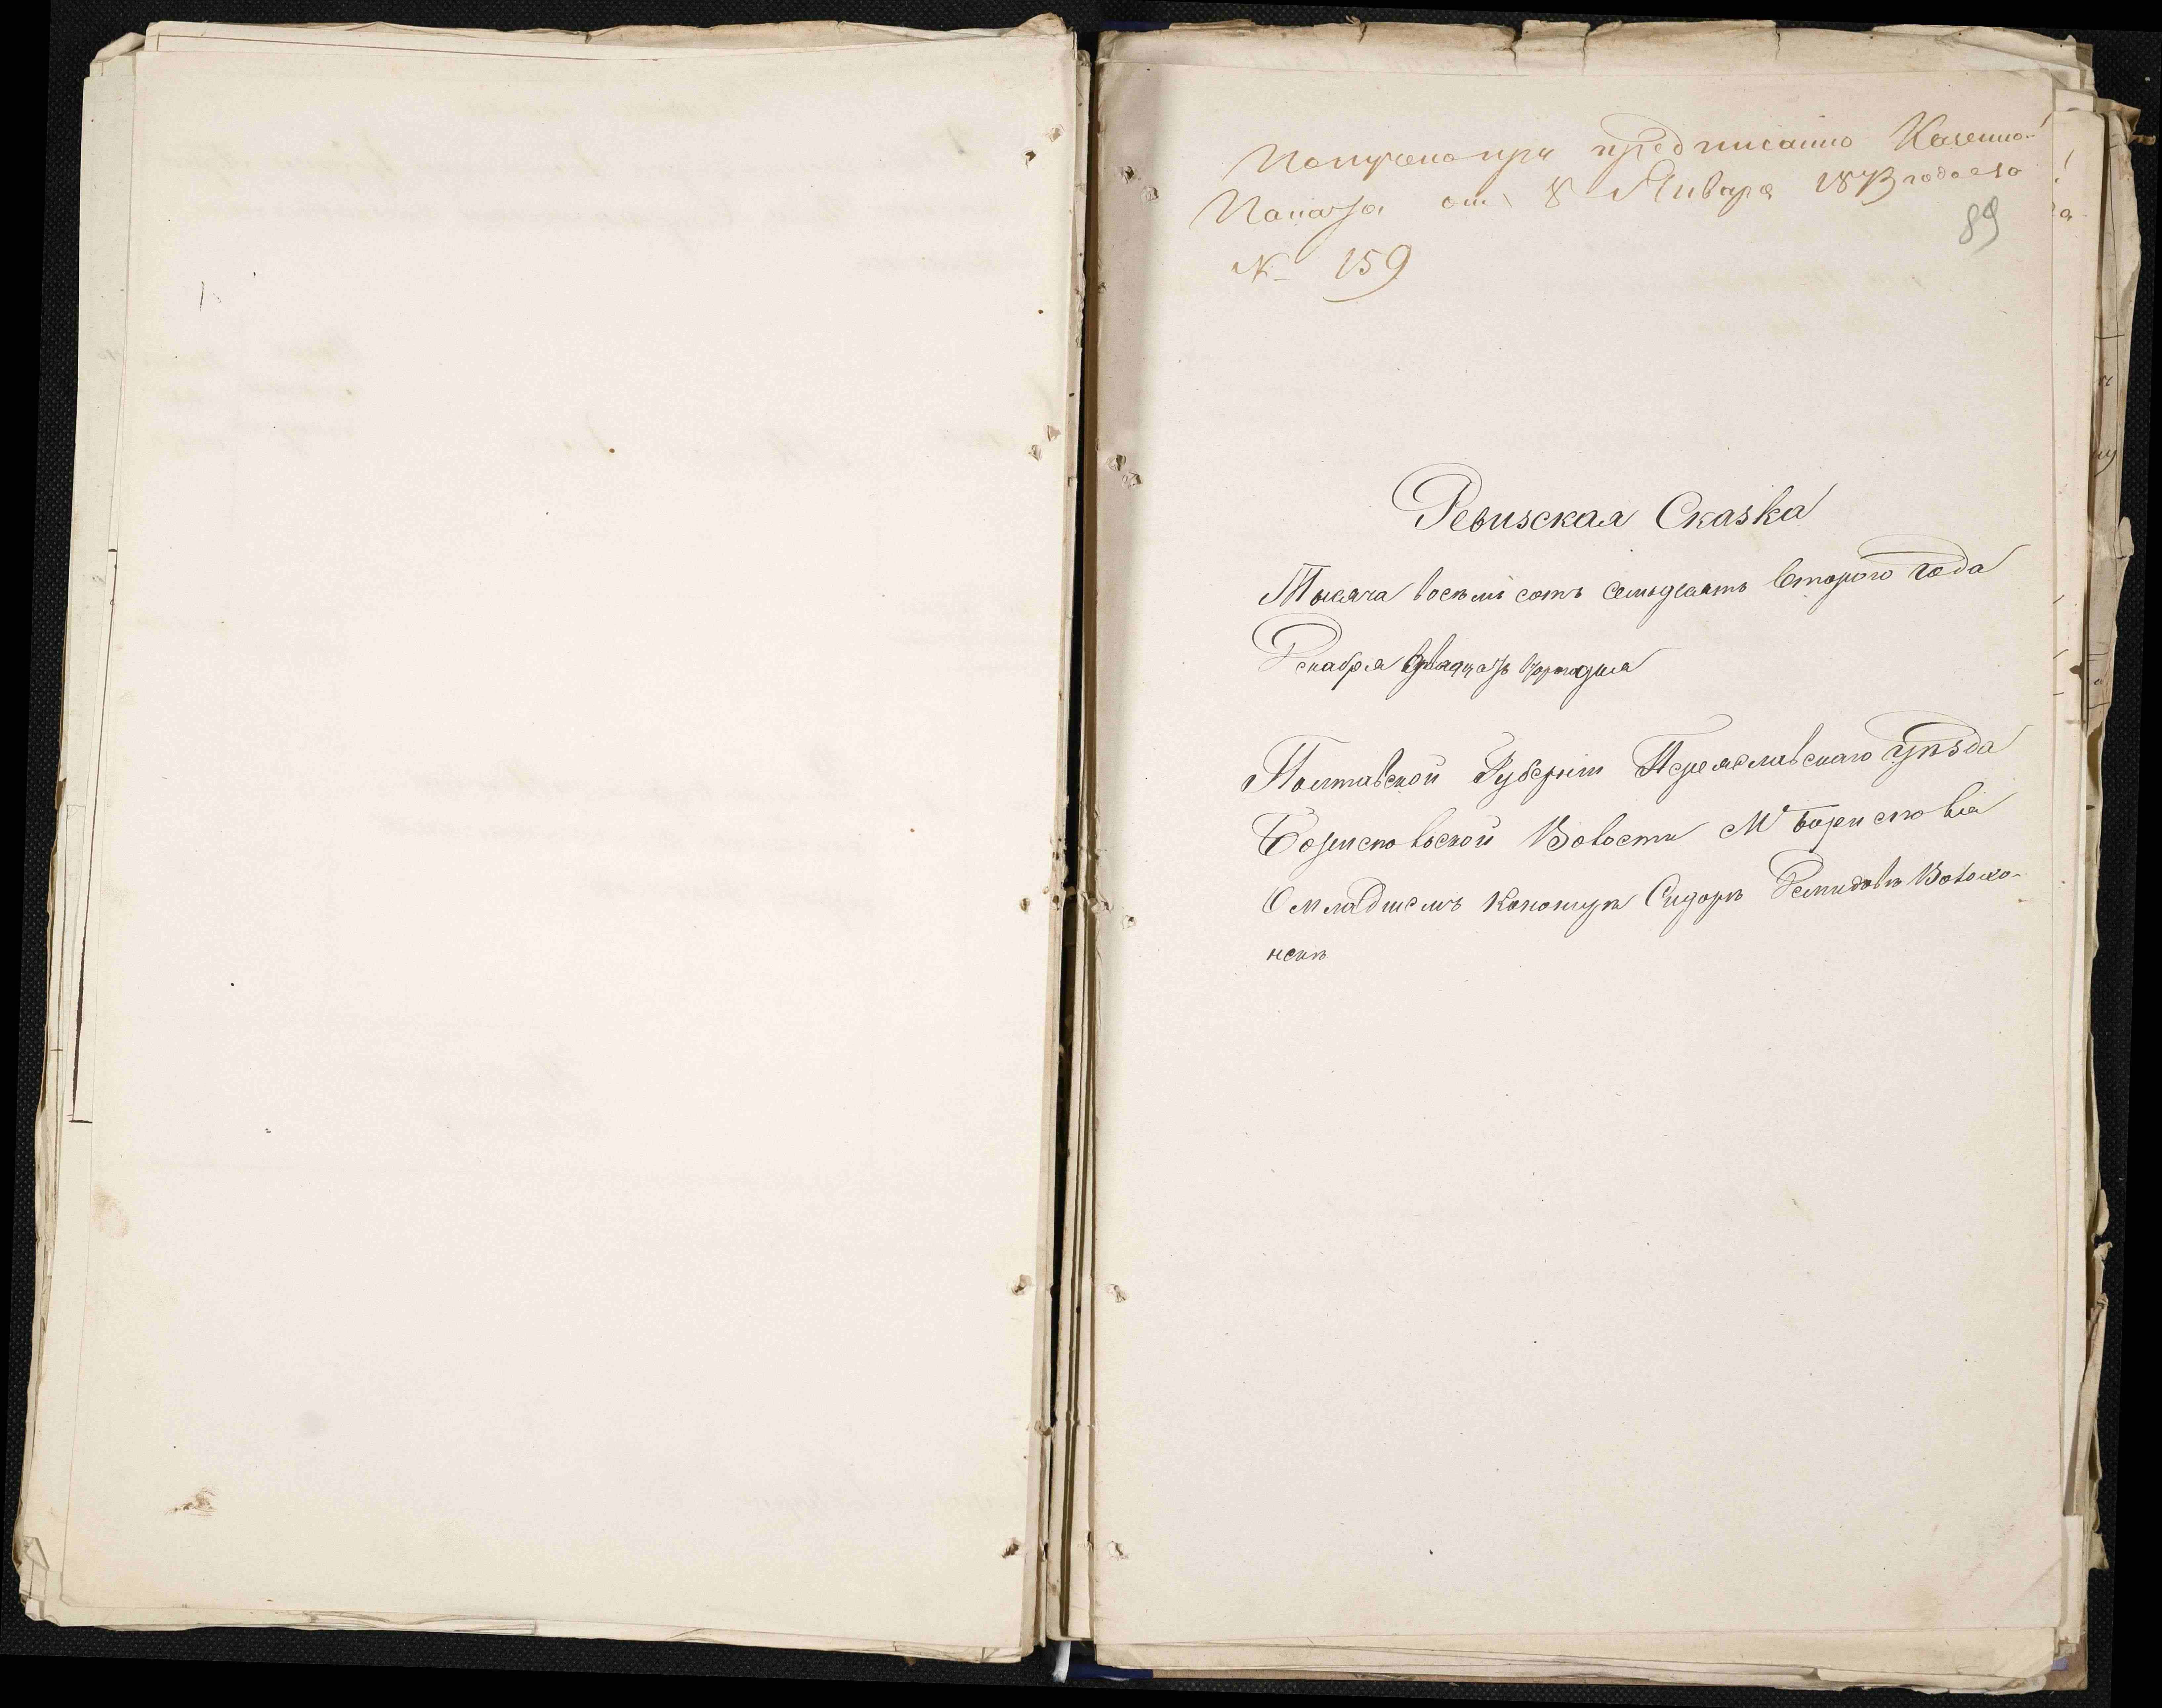 Получено при предписанию Казенно
Палаты от 8 Января 1873 года за
89
№ 159
Ревизская Сказка
Тысяча восемь сотъ семьдесятъ второго года
Декабря двадцать дня
Полтавской Губерніи Переяславскаго уѣзда
Борисповской Волости М Борисповля
О младшемъ Канонирѣ Сидорѣ Демидовѣ Волохо-
нскѣ